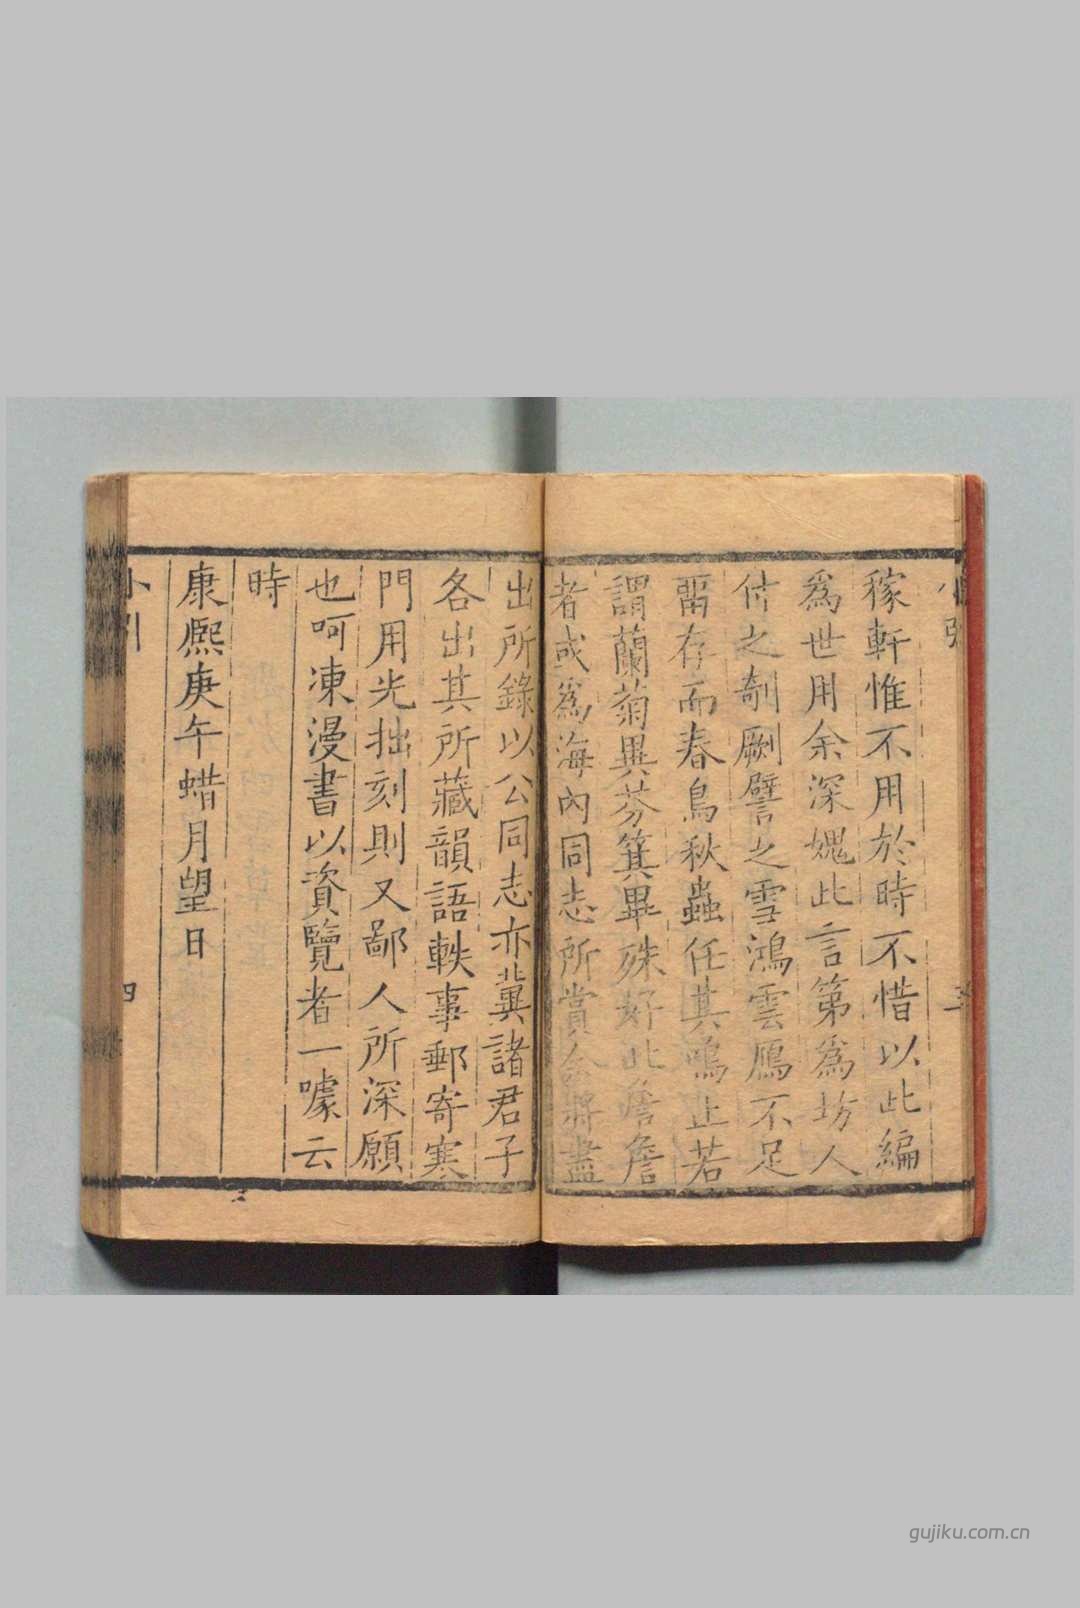 稼軒惟不用於時不惜以此編
爲世用余深媿此言第爲坊人
付之剞劂譬之雪鴻雲鴈不足
畱存而春鳥秋蟲任其鳴止若
謂蘭菊異芬箕畢殊好此詹詹
者或爲海內同志所賞余將盡
出所錄以公同志亦冀諸君子
各出其所藏韻語軼事郵寄寒
門用光拙刻則又鄙人所深願
也呵凍漫書以資覽者一噱云
時
康熙庚午蜡月望日
小引
四
gujiku.com.cn